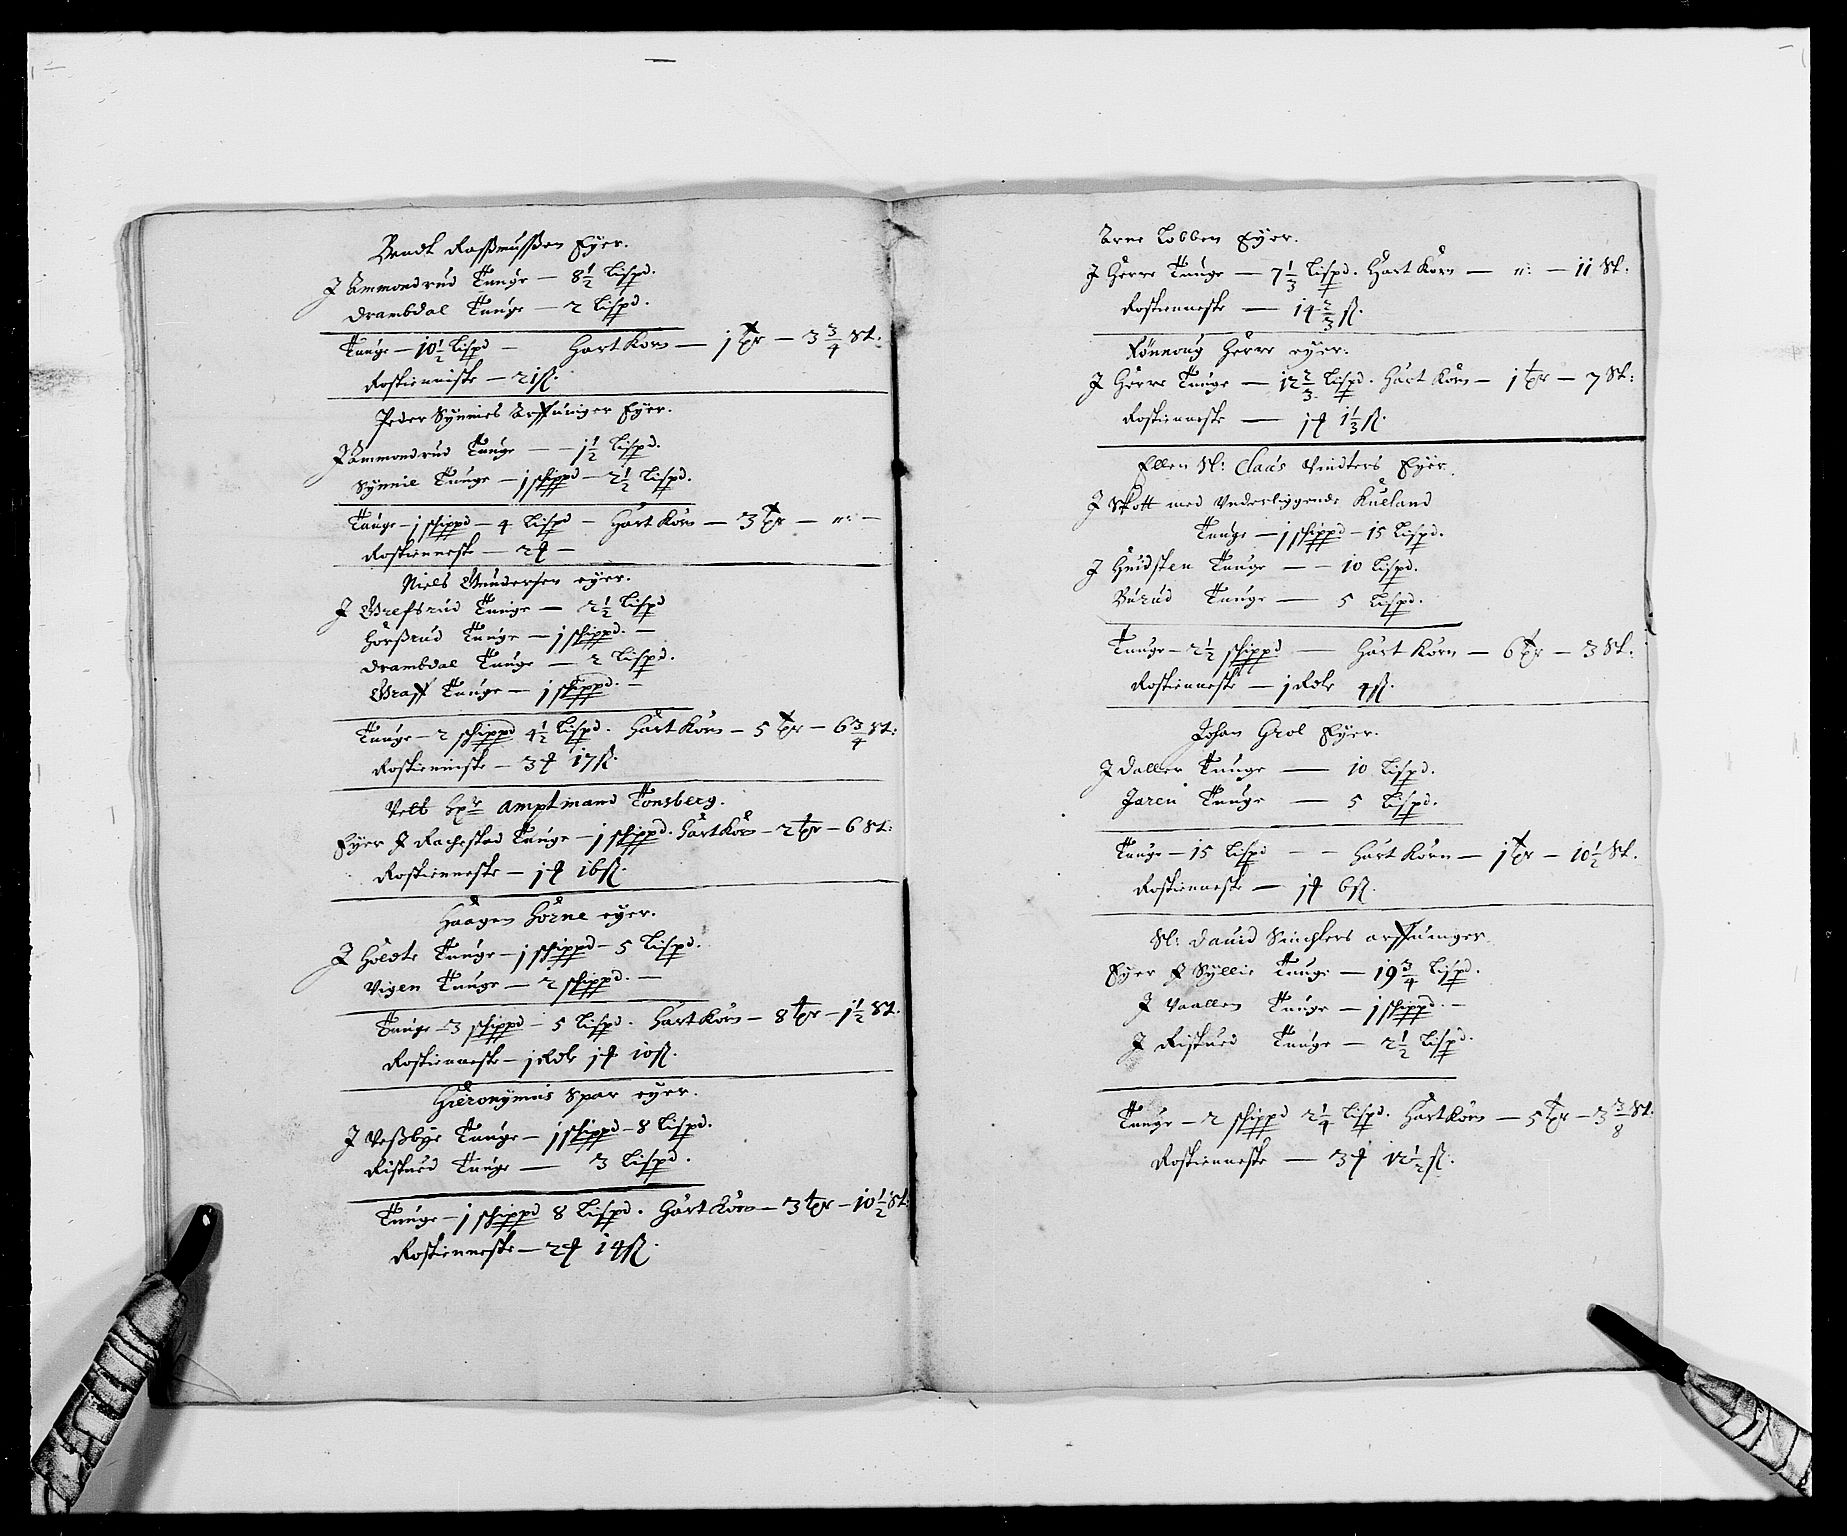 Bendt Rassmussøn Eÿer.
J Ammondrud Tunge — 8½ Lispd.
Drambdal Tunge — 2 Lispd.
Tunge — 10½ Lispd — Hart Korn — 1 Tdr — 3¾ St:
Rostienniste — 21 ß.
Peder Sÿnnies Arffuinger Eÿer.
J Ammondrud Tunge — — 1½ Lispd.
Sÿnnie Tunge — 1 schippd — 2½ Lispd.
Tunge — 1 schippd — 4 Lispd — Hart Korn — 3 Tdr — „: —
Rostienneste — 2 ₰ —
Niels Gundersen eÿer.
J Grefsrud Tunge — 2½ Lispd
Horßrud Tunge — 1 schippd. —
Drambdal Tunge — 2 Lispd.
Graff Tunge — 1 schippd. —
Tunge — 2 schippd 4½ Lispd. Hart Korn — 5 Tdr — 6¾ St:
Rostienniste — 3 ₰ 17 ß.
Velb Hr Amptmand Tonsberg.
Eÿer J Rachestad Tunge — 1 schippd. Hart Korn — 2 Tdr — 6 St:
Rostienneste — 1 ₰ 16 ß.
Haagen Horne eÿer.
J Holdte Tunge — 1 schippd — 5 Lispd.
Vigen Tunge — 2 schippd. —
Tunge — 3 schippd — 5 Lispd. Hart Korn — 8 Tdr — 1½ St.
Rostienneste — 1 Rdlr 1 ₰ 10 ß.
Hieronÿmus Spar eÿer.
J Veßbÿe Tunge — 1 schippd — 8 Lispd.
Risned Tunge — 3 Lispd.
Tunge — 1 schippd 8 Lispd. Hart Korn — 3 Tdr — 10½ St:
Rostienneste — 2 ₰ 14 ß.
Arne Lobben Eÿer.
J Herre Tunge — 7⅓ Lispd. Hart Korn — „: — 11 St:
Rostienneste — 14⅔ ß.
Rönnoug Herre eÿer.
J Herre Tunge — 12⅔ Lispd. Hart Korn — 1 Tdr — 7 St:
Rostienneste — 1 ₰ 1⅓ ß.
Ellen Sl: Claas Vindters Eÿer.
J Skott med Underliggende Kueland
Tunge — 1 schippd — 15 Lispd.
J Huidsten Tunge — — 10 Lispd.
Burud Tunge — 5 Lispd.
Tunge — 2½ schippd — Hart Korn — 6 Tdr — 3 St:
Rostienneste — 1 Rdlr 4 ß.
Johan Grol Eÿer.
J Daller Tunge — 10 Lispd.
Jaren Tunge — 5 Lispd.
Tunge — 15 Lispd — — Hart Korn — 1 Tdr — 10½ St.
Rostienneste — 1 ₰ 6 ß.
Sl: Dauid Sinchlers arffuinger
Eÿer J Sÿllie Tunge — 19¾ Lispd.
J Vaallen Tunge — 1 schippd. —
J Risned Tunge — 2½ Lispd.
Tunge — 2 schippd 2¼ Lispd. Hart Korn — 5 Tdr — 3⅜ St.
Rostienneste — 3 ₰ 12½ ß.